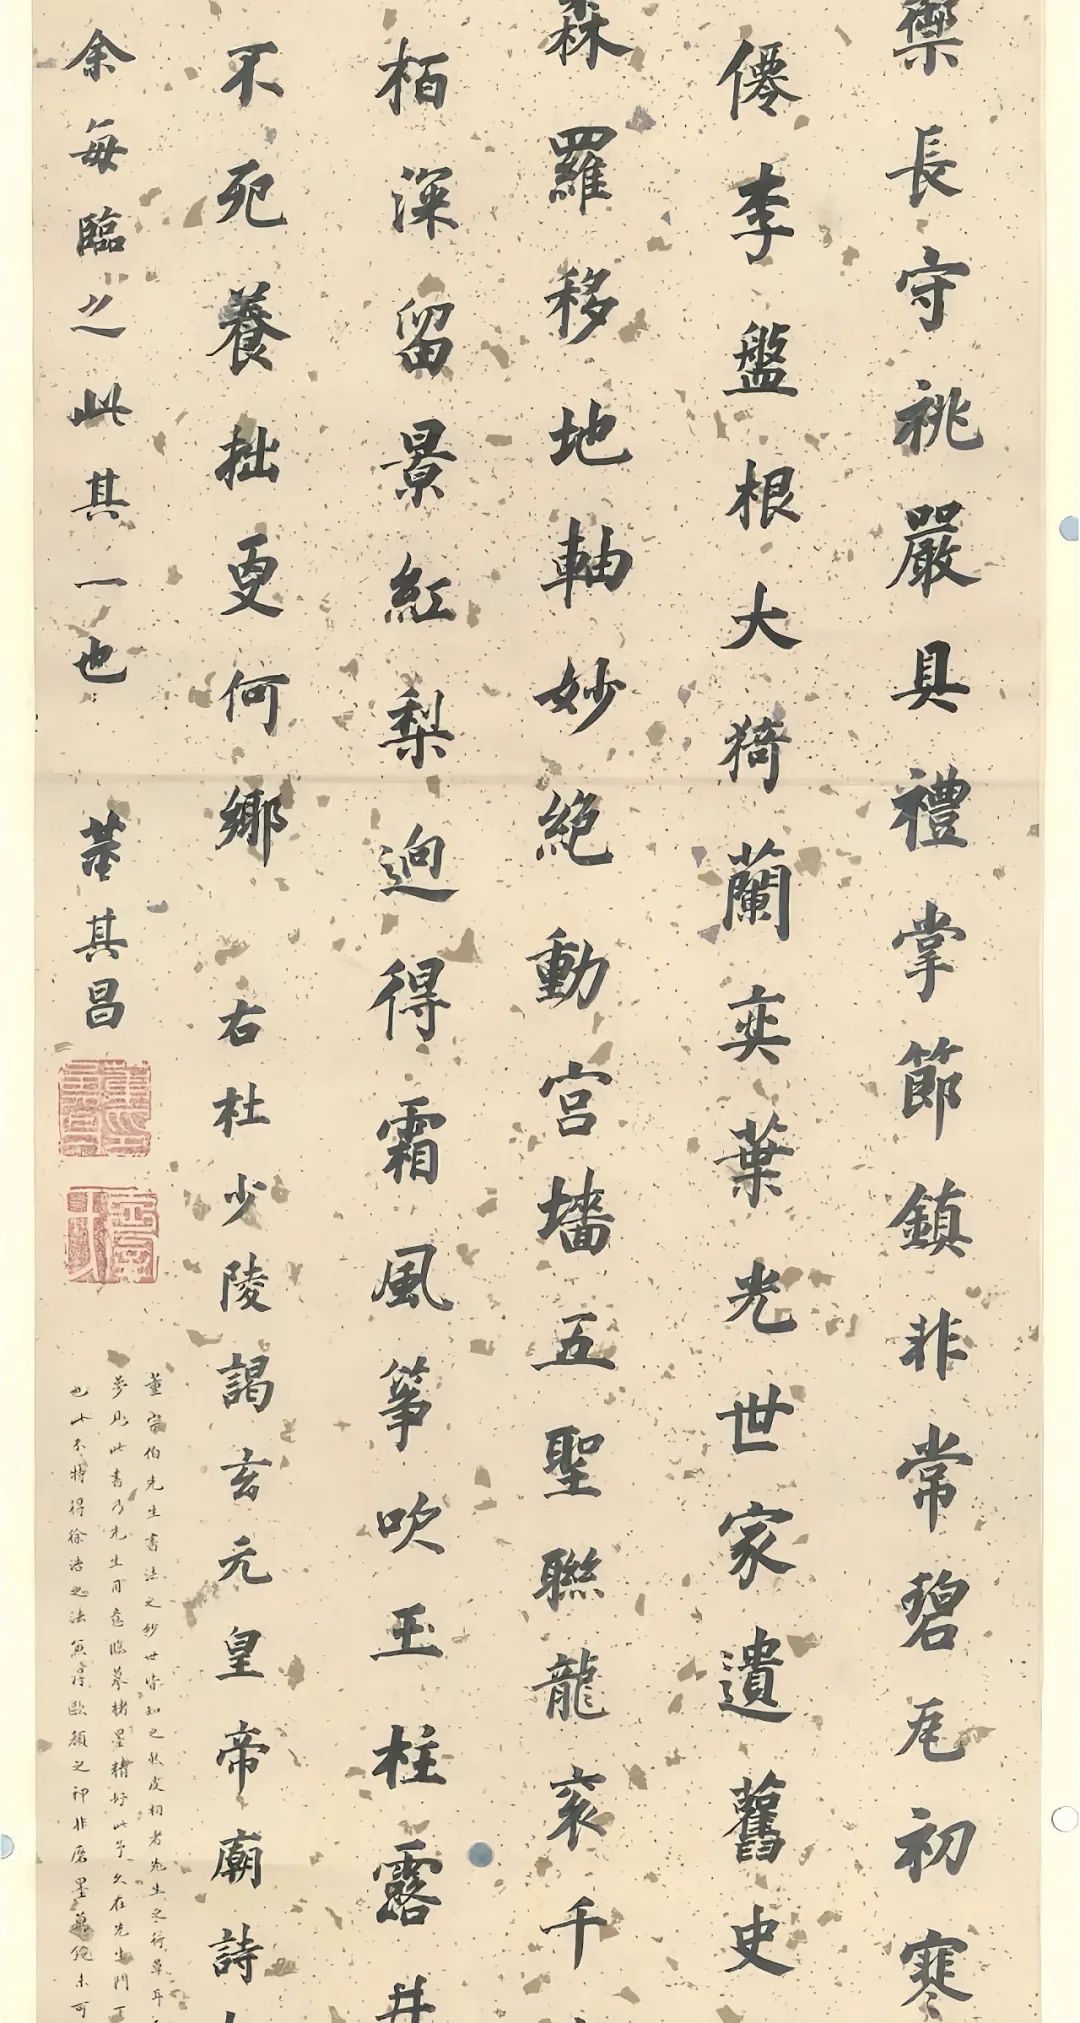 禦長守祧嚴具禮掌節鎮非常碧瓦初寒
僊李盤根大猗蘭奕葉光世家遺舊史
森羅移地軸妙絕動宮墻五聖聯龍袞千
栢深留景紅梨迥得霜風筝吹玉柱露井
不死養拙更何鄉 右杜少陵謁玄元皇帝廟詩
余每臨之此其一也 董其昌
董宗伯先生書法之妙世皆知之然皮相者先生之行草耳
夢見此書乃先生用意臨摹楮墨精好此予久在先生門下
也此不特得徐浩之法兼得歐顏之神非磨墨萬億未可